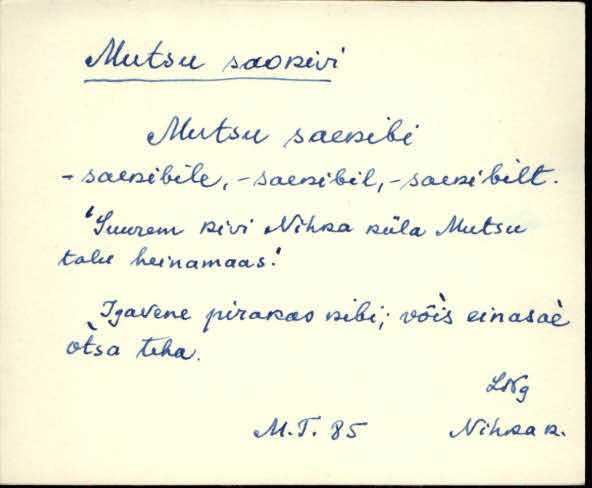 Mutsu saokivi
Mutsu saekibi
- saekibile, - saekibil, - saekibilt.
'Suurem kivi Nihka küla Mutsu
talu heinamaas.'
Igavene pirakas kibi; võìs einasaè
òtsa teha.
LNg
M.T. 85 Nihka k.